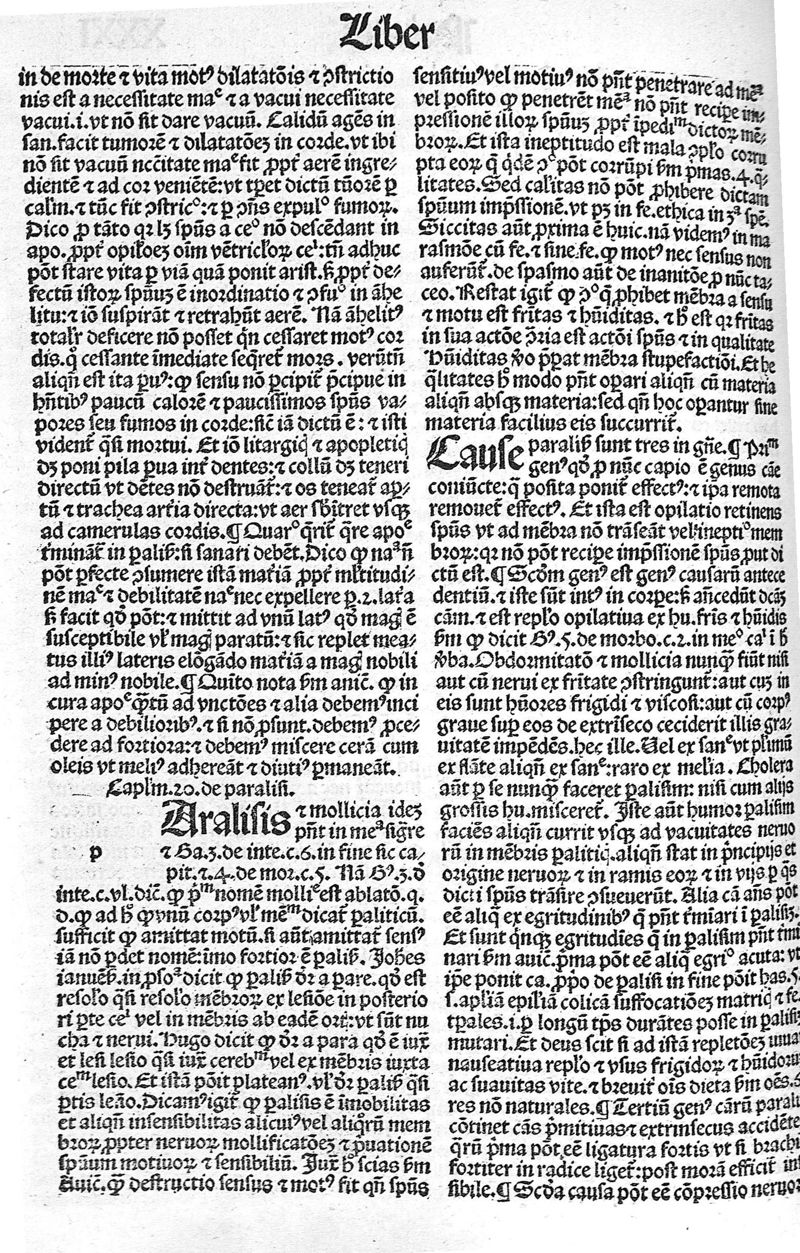 Liber
in de morte ⁊ vita motꝰ dilatatōis ⁊ ꝯstrictio
nis est a necessitate maᵉ ⁊ a vacui necessitate
vacui.i.vt nō sit dare vacuū. Calidū agēs in
san.facit tumorē ⁊ dilatatōeꝫ in corde.vt ibi
nō sit vacuū nccitate maᵉ fit ꝓpt̄ aerē ingre⸗
dientē ⁊ ad cor veniētē: vt tꝑet dictū tūorē ꝑ
calm̄.⁊ tūc fit ꝯstricᵒ:⁊ ꝑ ꝯn̄s expulᵒ fumoꝝ.
Dico ꝑ tāto qꝛ lꝫ spūs a ceᵒ nō descēdant in
apo.ꝓpt̄ opiloeꝫ oīm vētricloꝝ ceⁱ:tn̄ adhuc
pōt stare vita ꝑ viā quā ponit arist.ẜ ꝓpt̄ de⸗
fectū istoꝝ spūuꝫ ē inordinatio ⁊ ꝯfuᵒ in āhe
litu:⁊ iō suspirāt ⁊ retrahūt aerē. Nā āhelitꝰ
totalr̄ deficere nō posset qn̄ cessaret motꝰ cor
dis.q̄ cessante īmediate seqret̄ mors. verūtn̄
aliqn̄ est ita ꝑuꝰ:ꝙ sensu nō ꝑcipit̄ p̄cipue in
hn̄tibꝰ paucū calorē ⁊ paucissimos spūs va⸗
pores seu fumos in corde:sic̄ iā dictū ē:⁊ isti
vident̄ qsi mortui. Et iō litargiq̄ ⁊ apopletiq̄
dꝫ poni pila ꝑua int̄ dentes:⁊ collū dꝫ teneri
directū vt dētes nō destruāt̄:⁊ os teneat̄ aꝑ⸗
tū ⁊ trachea art̄ia directa:vt aer sb̄itret vsqꝫ
ad camerulas cordis.¶ Quarᵒ q̄rit̄ q̄re apoᵉ
t̄mināt̄ in palis̄:si sanari debēt.Dico ꝙ naᵃ n̄
pōt ꝑfecte ꝯsumere istā mat̄iā ꝓpt̄ ml̄titudi⸗
nē maᵉ ⁊ debilitatē naᵉ nec expellere ꝑ.2.lat̄a
ẜ facit qd̄ pōt:⁊ mittit ad vnū latꝰ qd̄ magꝭ ē
susceptibile vl̄ magꝭ paratū:⁊ sic replet mea⸗
tus illiꝰ lateris elōgādo mat̄iā a magꝭ nobili
ad minꝰ nobile.¶ Quīto nota ẜm anic̄. ꝙ in
cura apoᵉ ꝙ̄tū ad vnctōes ⁊ alia debemꝰ inci
pere a debilioribꝰ.⁊ si nō ꝓsunt.debemꝰ ꝓce⸗
dere ad fortiora:⁊ debemꝰ miscere cerā cum
oleis vt meliꝰ adhereāt ⁊ diutiꝰ ꝑmaneāt.
Caplm̄.20.de paralisi.
p
Aralisis ⁊ mollicia ideꝫ
pn̄t in meᵃ sigr̄e
⁊ Ga.3.de inte.c.6.in fine sic ca⸗
pit.⁊.4.de mor.c.5. Nā Gꝰ.3.ꝺ
inte.c.vl.dic̄. ꝙ pⁱᵐ nomē molliᵉ est ablatō.q.
d.ꝙ ad h̄ ꝙ vnū corpꝰ vl̄ mēᵐ dicat̄ paliticū.
sufficit ꝙ amittat motū.si aūt amittat̄ sensꝰ
iā nō ꝑdet nomē:īmo fortior ē palis̄. Johēs
ianuēs̄.in.ꝓsoᵃ dicit ꝙ palis̄ dr̄ a pare. qd̄ est
resolᵒ qsi resolᵒ mēbroꝝ ex lesiōe in posterio
ri ꝑte ceⁱ vel in mēbris ab eadē ort̄:vt sūt nu
cha ⁊ nerui. Hugo dicit ꝙ dr̄ a para qd̄ ē iux̄
et lesi lesio qsi iux̄ cerebᵐ vel ex mēbris iuxta
ceᵐ lesio. Et istā pōit plateanꝰ. vl̄ dr̄ palis̄ qsi
ꝑtis lesio. Dicamꝰ igit̄ ꝙ palisis ē īmobilitas
et aliqn̄ insensibilitas alicuiꝰ vel aliqrū mem
broꝝ.ꝓpter neruoꝝ mollificatōeꝫ ⁊ p̄uationē
spūum motiuoꝝ ⁊ sensibiliū. Jux̄ h̄ scias ẜm
Auic̄.ꝙ destructio sensus ⁊ motꝰ fit qn̄ spūs
sensitiuꝰ vel motiuꝰ nō pn̄t penetrare ad mēᵃ
vel posito ꝙ penetrēt mēᵃ nō pn̄t recipe im⸗
pressionē illoꝝ spūuꝫ ꝓpt̄ īpediᵐ dictoꝝ mē⸗
broꝝ.Et ista ineptitudo est mala ꝯplᵒ corru
pta eoꝝ q̄ qdē ꝯᵒ pōt corrūpi ẜm p̄mas.4.q̄⸗
litates. Sed caliditas nō pōt ꝓhibere dictam
spūum imp̄ssionē.vt pꝫ in fe.ethica in 3ᵃ spē.
Siccitas aūt proxima ē huic.nā videmꝰ in ma
rasmōe cū fe.⁊ sine.fe.ꝙ motꝰ nec sensus non
auferūt̄.de spasmo aūt de inanitōe ꝓ nūc ta⸗
ceo. Restat igit̄ ꝙ ꝯᵒ q̄ ꝓhibet mēbra a sensu
⁊ motu est fr̄itas ⁊ hūiditas.⁊ h̄ est qꝛ fr̄itas
in sua actōe ꝯria est actōi spūs ⁊ in qualitate
Hūiditas v̄o p̄parat mēbra stupefactiōi.Et he
q̄litates h̄ modo pn̄t oꝑari aliqn̄ cū materia
aliqn̄ absqꝫ materia:sed qn̄ hoc oꝑantur sine
materia facilius eis succurrit̄.
Cause paralis̄ sunt tres in gn̄e.¶ Priᵐ
genꝰ qd̄ ꝓ nūc capio ē genus cāe
coniūcte:q̄ posita ponit̄ effectꝰ:⁊ ip̄a remota
remouet̄ effectꝰ. Et ista est opilatio retinens
spūs vt ad mēbra nō trāseāt vel ineptiᵒ mem
broꝝ:qꝛ nō pōt recipe imp̄ssionē spūs ꝓut di
ctū est.¶ Scd̄m genꝰ est genꝰ causarū antece
dentiū.⁊ iste sūt intꝰ in corꝑe:ẜ an̄cedūt dc̄aꝫ
cām.⁊ est replᵒ opilatiua ex hu.fr̄is ⁊ hūidis
ẜm ꝙ dicit Gꝰ.5.de morbo.c.2.in meᵒ caⁱ ī h̄
v̄ba.Obdormitatō ⁊ mollicia nunqꝫ fiūt nisi
aut cū nerui ex fr̄itate ꝯstringunt̄:aut cuꝫ in
eis sunt hūores frigidi ⁊ viscosi:aut cū corpꝰ
graue suꝑ eos de extrīseco ceciderit illis gra⸗
uitatē impēdēs.hec ille.Uel ex sanᵉ vt pl̄imū
ex flāte aliqn̄ ex sanᵉ:raro ex mel̄ia. Cholera
aūt ꝑ se nunqꝫ faceret palisim: nisi cum alijs
grossis hu.misceret̄. Iste aūt humor palisim
faciēs aliqn̄ currit vsqꝫ ad vacuitates neruo
rū in mēbris palitiꝯ.aliqn̄ stat in p̄ncipijs et
origine neruoꝝ ⁊ in ramis eoꝝ ⁊ in vijs ꝑ q̄s
dicti spūs trāsire ꝯsueuerūt. Alia cā an̄s pōt
eē aliq̄ ex egritudinibꝰ q̄ pn̄t t̄miari ī palisiꝫ.
Et sunt qnqꝫ egritudīes q̄ in palisim pn̄t t̄mi
nari ẜm auic̄.p̄ma pōt eē aliq̄ egriᵒ acuta: vt
ip̄e ponit ca.ꝓpo de palisi in fine pōit has.5.
s.aplīā epīl̄iā colicā suffocatōeꝫ matriꝯ ⁊ fe.
tꝑales.i.ꝑ longū tp̄s durātes posse in palisiꝫ
mutari. Et deus scit si ad istā repletōeꝫ iuuat
nauseatiua replᵒ ⁊ vsus frigidoꝝ ⁊ hūidoruꝫ
ac suauitas vite.⁊ breuit̄ oīs dieta ẜm oēs.6
res nō naturales.¶ Tertiū genꝰ cārū parali
cōtinet cās p̄mitiuas ⁊ extrinsecus accidēte
qrū p̄ma pōt eē ligatura fortis vt si brachi
fortiter in radice liget̄:post morā efficit̄ in
sibile.¶ Scd̄a causa pōt eē cōpressio neruoꝝ